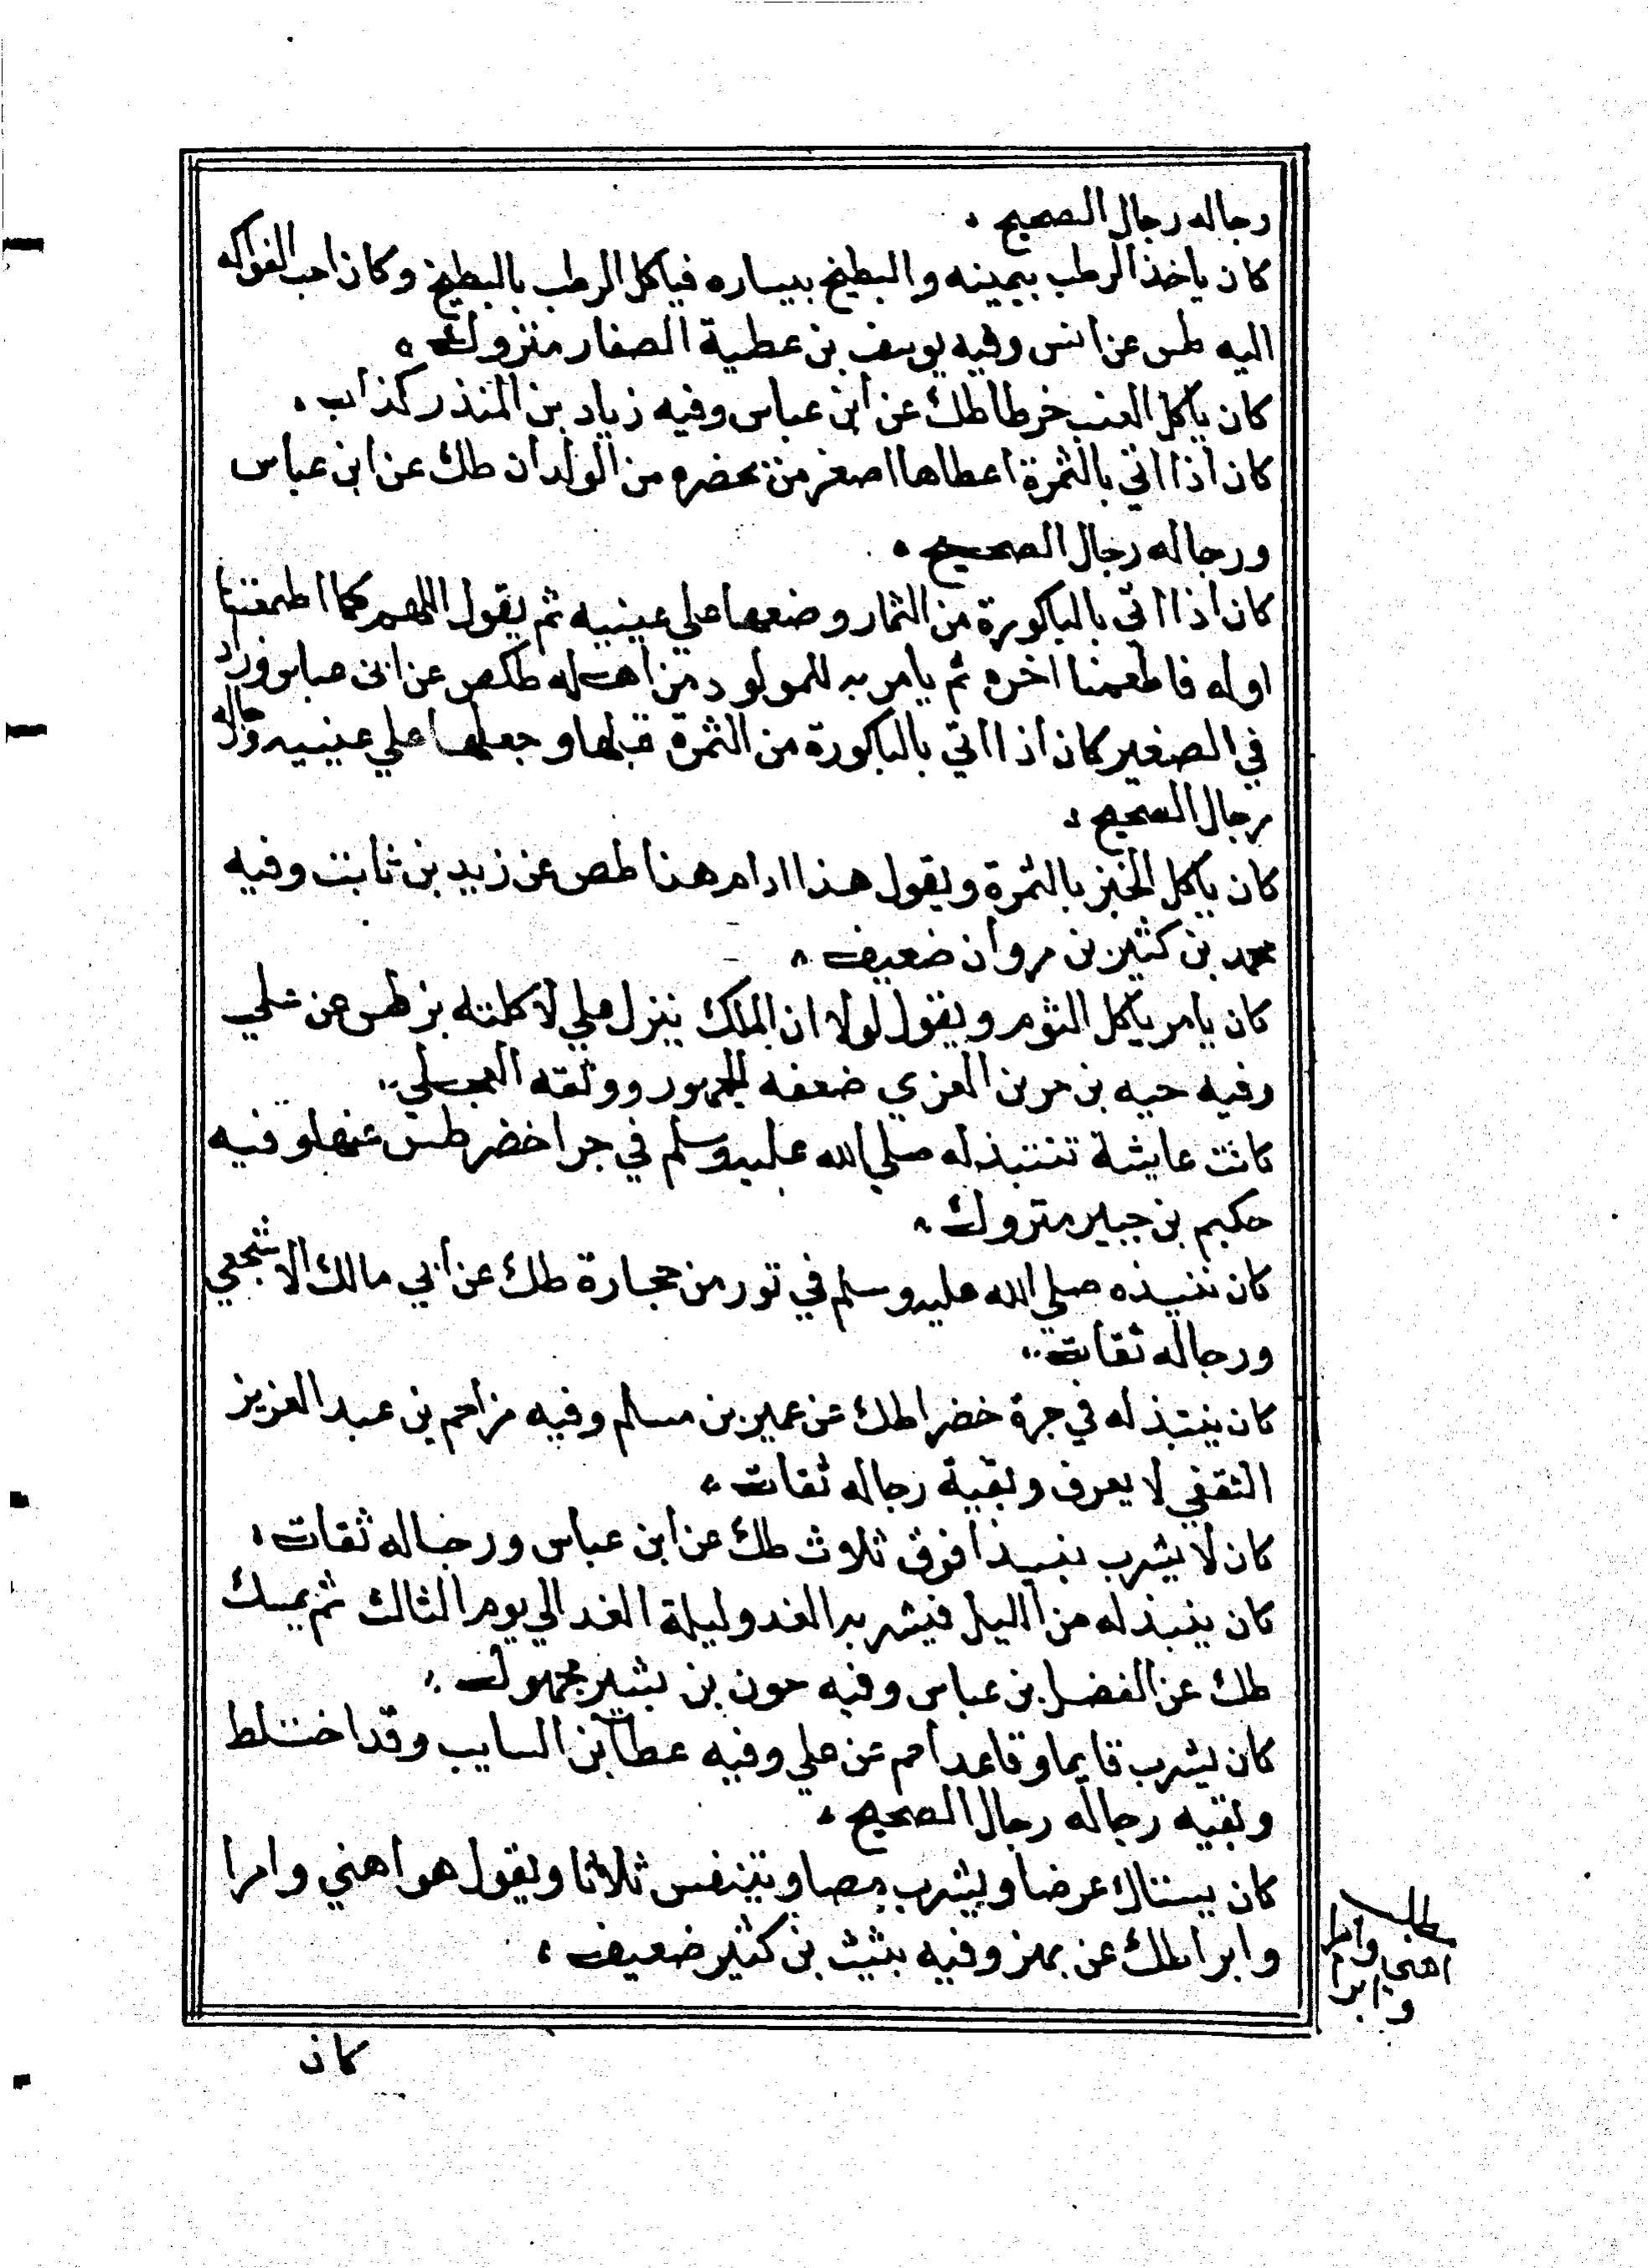 رجاله رجال الصحيح
كان ياخذ الرطب بيمينه والبطيخ بيساره فياكل الرطب بالبطيخ وكان احب الفواكه
اليه طس عن انس وفيه يوسف بن عطية الصفار متروك
كان ياكل العنب خرطا طك عن ابن عباس وفيه زياد بن المنذر كذاب
كان اذا اتي بالثمرة اعطاها اصغر من يحضره من الولدان طك عن ابن عباس
ورجاله رجال الصحيح
كان اذا اتي بالباكورة من الثمار وضعها علي عينيه ثم يقول اللهم كما اطعمتنا
اوله فاطعمنا اخره ثم يامر به للمولود من اهله طكص عن ابن عباس وزاد
في الصغير كان اذا اتي بالباكورة من الثمرة قبلها وجعلها علي عينيه ورجاله
رجال الصحيح
كان ياكل الخبز بالتمرة ويقول هذا ادام هذا طص عن زيد بن ثابت وفيه
محمد بن كثير بن مروان ضعيف
كان يامر ياكل الثوم ويقول لولا ان الملك ينزل علي لاكلته بز طس عن علي
وفيه حبه بن جرين العزي ضعفه الجمهور ووثقه العجلي
كانت عايشة تنتبذ له صلي الله عليه وسلم في جر اخضر طس عنها وفيه
حكيم بن جبير متروك
كان نبيذه صلي الله عليه وسلم في تور من حجارة طك عن ابي مالك الاشجعي
ورجاله ثقات
كان ينتبذ له في جرة خضرا طك عن عمير بن مسلم وفيه مزاحم بن عبد العزيز
الثقفي لا يعرف وبقية رجاله ثقات
كان لا يشرب نبيذا فوق ثلاث طك عن ابن عباس ورجاله ثقات
كان ينبذ له من الليل فيشربه الغد وليلة الغد الي يوم الثالث ثم يمسك
طك عن الفضل بن عباس وفيه حون بن بشير مجهول
كان يشرب قايما وقاعدا حم عن علي وفيه عطا بن السايب وقد اختلط
وبقيه رجاله رجال الصحيح
كان يستاك عرضا ويشرب مصا ويتنفس ثلاثا ويقول هو اهني وامرا
وابرا طك عن بهز وفيه بثيت بن كثير ضعيف
مطلب
اهنى وامرا
وابرا
كان